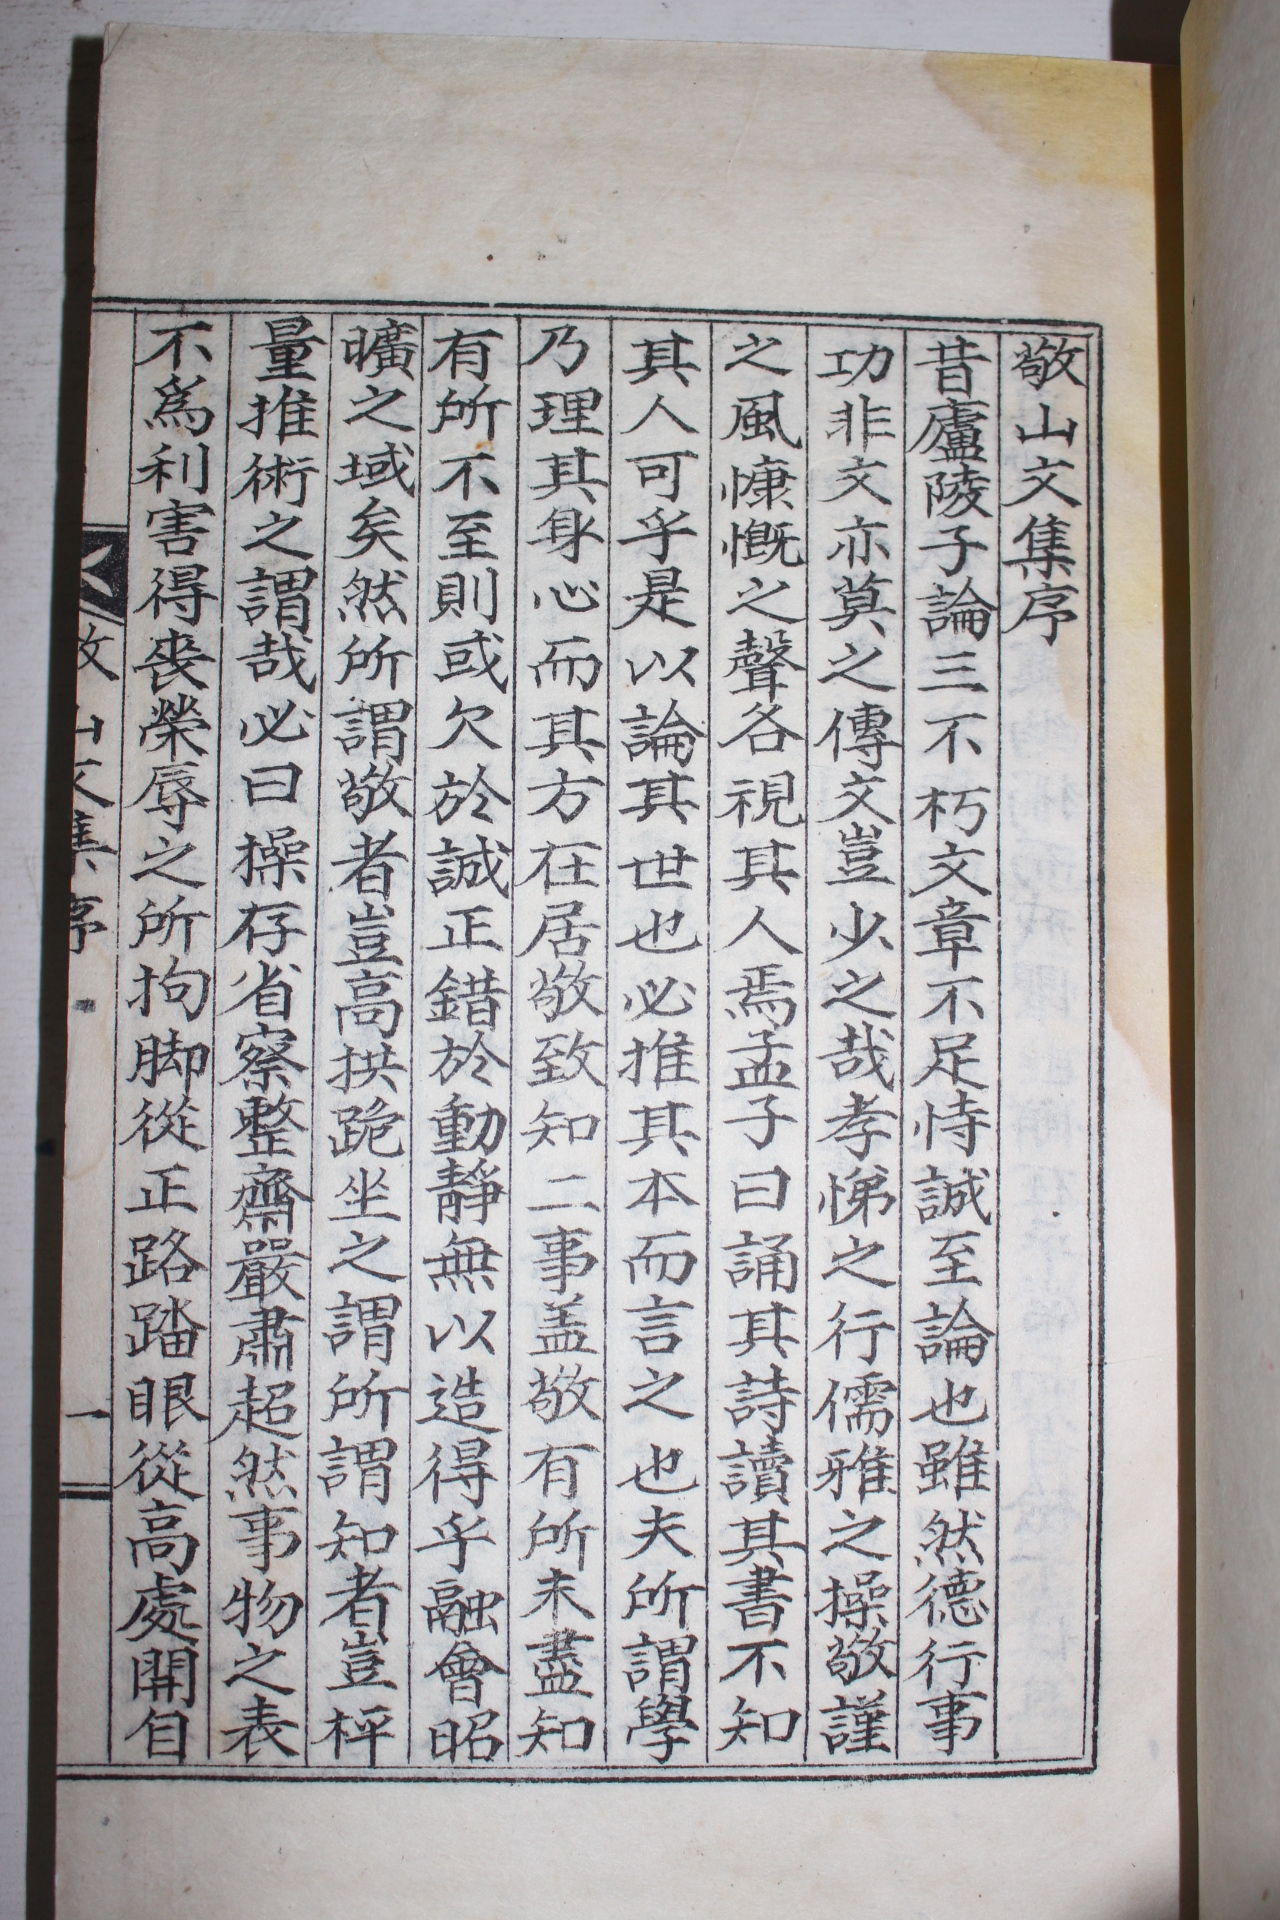 敬山文集序
昔廬陵子論三不朽文章不足恃誠至論也雖然德行事
功非文亦莫之傳文豈少之哉孝悌之行儒雅之操敬謹
之風慷慨之聲各視其人焉孟子曰誦其詩讀其書不知
其人可乎是以論其世也必推其本而言之也夫所謂學
乃理其身心而其方在居敬致知二事盖敬有所未盡知
有所不至則或欠於誠正錯於動靜無以造得乎融會昭
曠之域矣然所謂敬者豈高拱跪坐之謂所謂知者豈枰
量推術之謂哉必曰操存省察整齋嚴肅超然事物之表
不爲利害得喪榮辱之所拘脚從正路踏眼從高處開自
敬山文集序
一